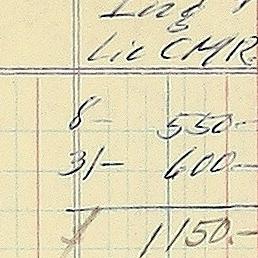 Lic CMR
8- 550.-
31- 600.-
1150.-